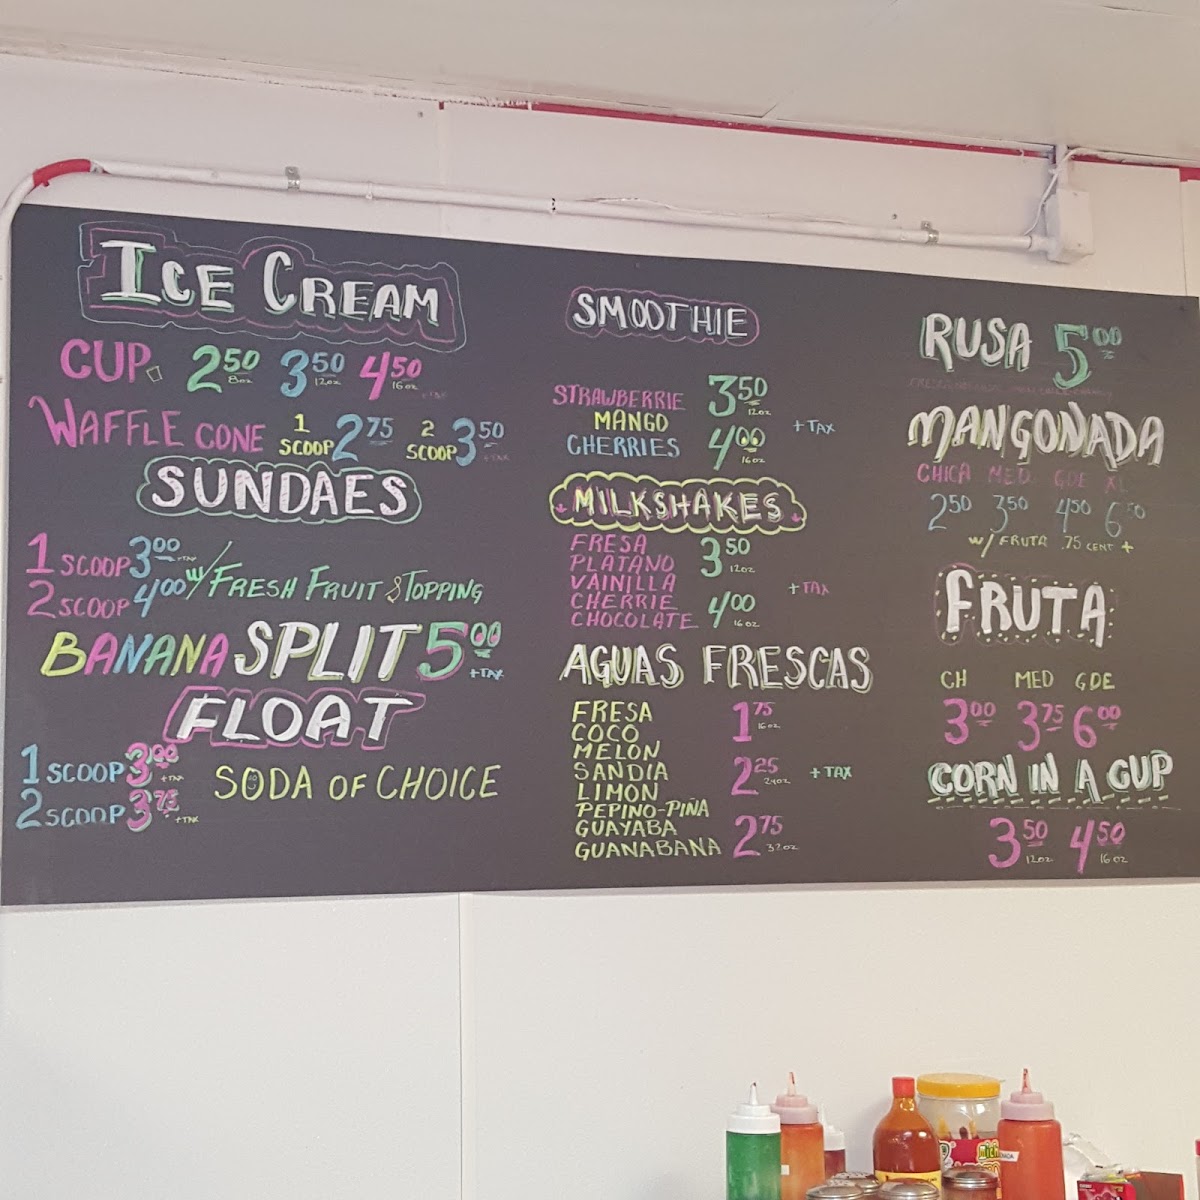 ICE CREAM
CUP 2.50 8oz 3.50 12oz 4.50 16oz +TAX
WAFFLE CONE 1 SCOOP 2.75 2 SCOOP 3.50 +TAX
SUNDAES
1 SCOOP 3.00 +TAX
2 SCOOP 4.00 w/ FRESH FRUIT & TOPPING
BANANA SPLIT 5.00 +TAX
FLOAT
1 SCOOP 3.00 +TAX
2 SCOOP 3.75 +TAX
SODA OF CHOICE
SMOOTHIE
STRAWBERRIE 3.50 12oz
MANGO + TAX
CHERRIES 4.00 16oz
MILKSHAKES
FRESA 3.50 12oz
PLATANO
VAINILLA + TAX
CHERRIE 4.00 16oz
CHOCOLATE
AGUAS FRESCAS
FRESA 1.75 16oz
COCO
MELON
SANDIA 2.25 24oz + TAX
LIMON
PEPINO-PIÑA
GUAYABA 2.75 32oz
GUANABANA
RUSA 5.00
MANGONADA
CHICA MED. GDE XL
2.50 3.50 4.50 6.50
w/ FRUTA .75 CENT +
FRUTA
CH MED GDE
3.00 3.75 6.00
CORN IN A CUP
3.50 12oz 4.50 16oz